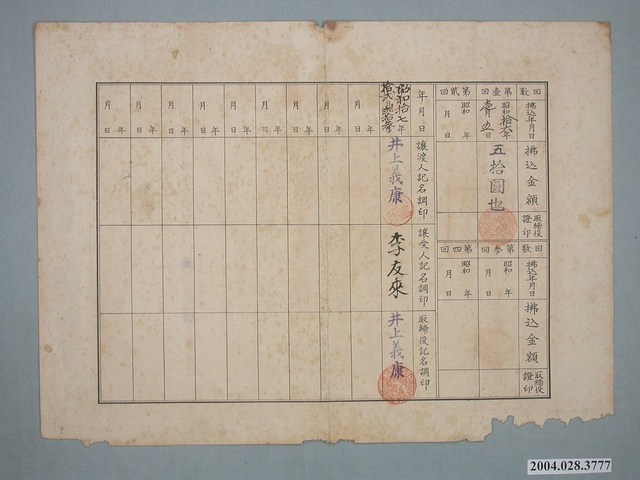 回數
第壹回
第貳回
拂込年月日
昭和拾六年
月五日
昭和 年
月 日
拂込金額
五拾圓也
取締役證印
回數
第參回
第四回
拂込年月日
昭和 年
月 日
昭和 年
月 日
拂込金額
取締役證印
年月日
昭和拾七年
拾貳月
讓渡人記名調印
井上義康
讓受人記名調印
李友來
取締役記名調印
井上義康
年
月 日
年
月 日
年
月 日
年
月 日
年
月 日
年
月 日
年
月 日
年
月 日
2004.028.3777